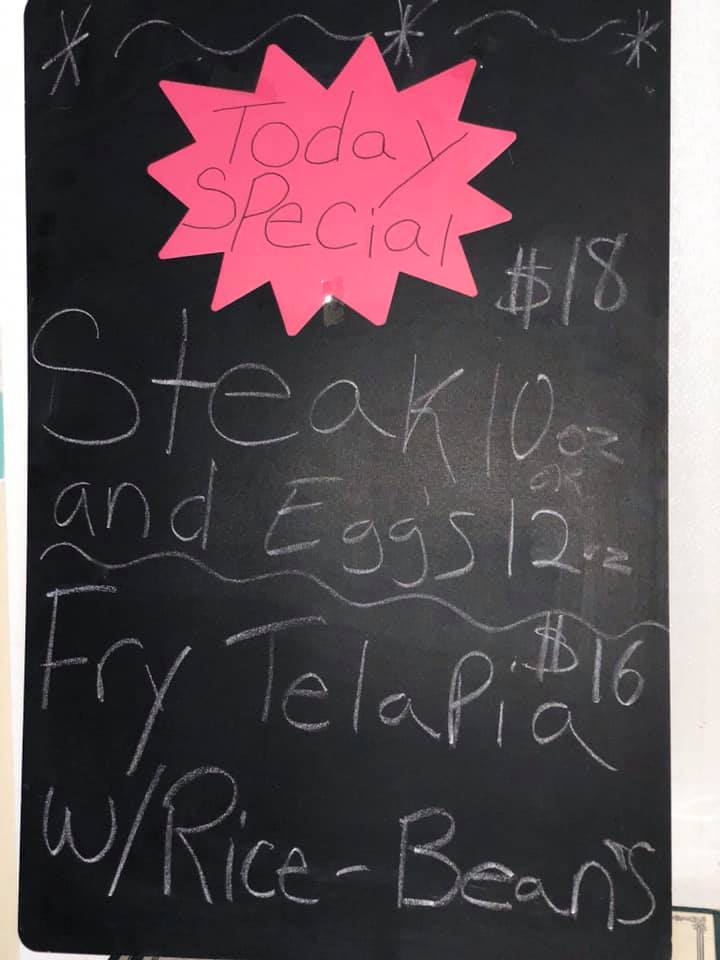 Today
Special
$18
Steak 10 oz
or
and Egg's 12 oz
$16
Fry Telapia
w/Rice-Bean's